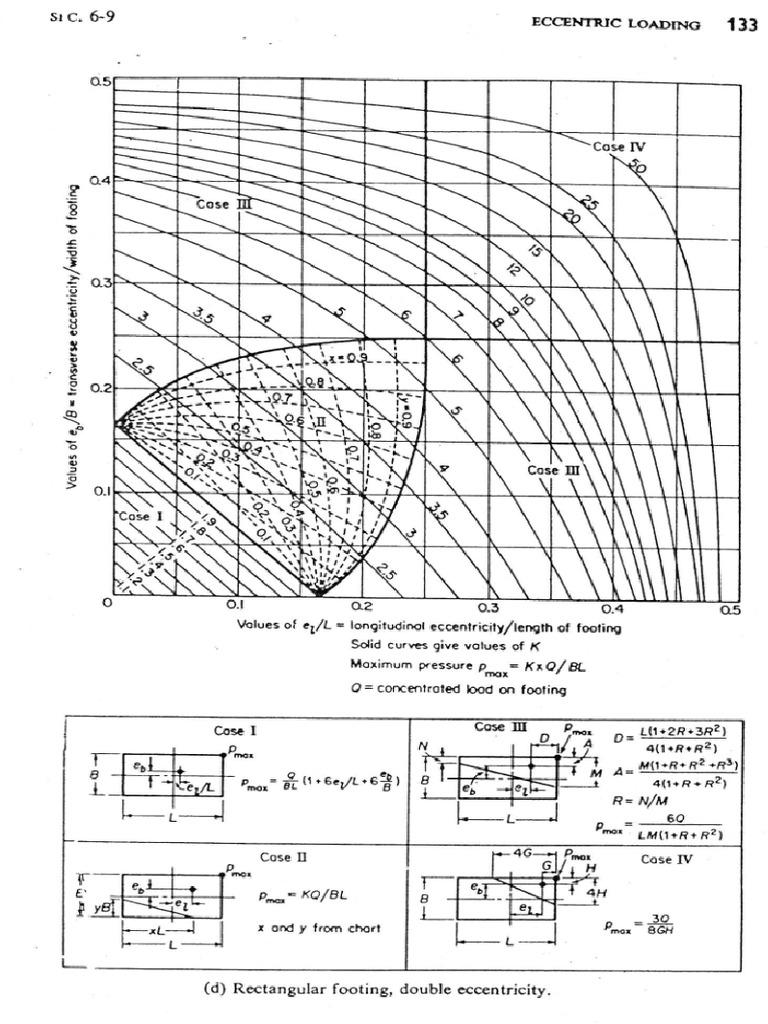 SEC. 6-9
ECCENTRIC LOADING 133
0.5
Case IV
50
0.4
Case III
25
20
15
12
10
9
8
0.3
3
3.5
4
5
6
7
2.5
x=0.9
6
0.2
0.8
0.7
y=0.9
5
0.6
II
0.8
0.5
0.7
4
0.4
0.3
0.2
0.1
0.6
0.5
Case III
0.1
0.4
3.5
Case I
0.2
0.3
0.1
3
2.5
.9
.8
.7
.6
.5
.4
.3
.2
.1
0
0.1
0.2
0.3
0.4
0.5
Values of e_b/B = transverse eccentricity/width of footing
Values of e_l/L = longitudinal eccentricity/length of footing
Solid curves give values of K
Maximum pressure p_max = K x Q/BL
Q = concentrated load on footing
Case I
p_max
B
e_b
e_l/L
L
p_max = Q/BL (1+6e_l/L+6 e_b/B)
Case III
N
D
p_max
A
B
e_b
e_l
M
L
D = L(1+2R+3R²)/4(1+R+R²)
A = M(1+R+R²+R³)/4(1+R+R²)
R = N/M
p_max = 6Q/LM(1+R+R²)
Case II
p_max
yB
e_b
e_l
xL
L
p_max = KQ/BL
x and y from chart
Case IV
4G
G
p_max
H
4H
B
e_b
e_l
L
p_max = 3Q/8GH
(d) Rectangular footing, double eccentricity.